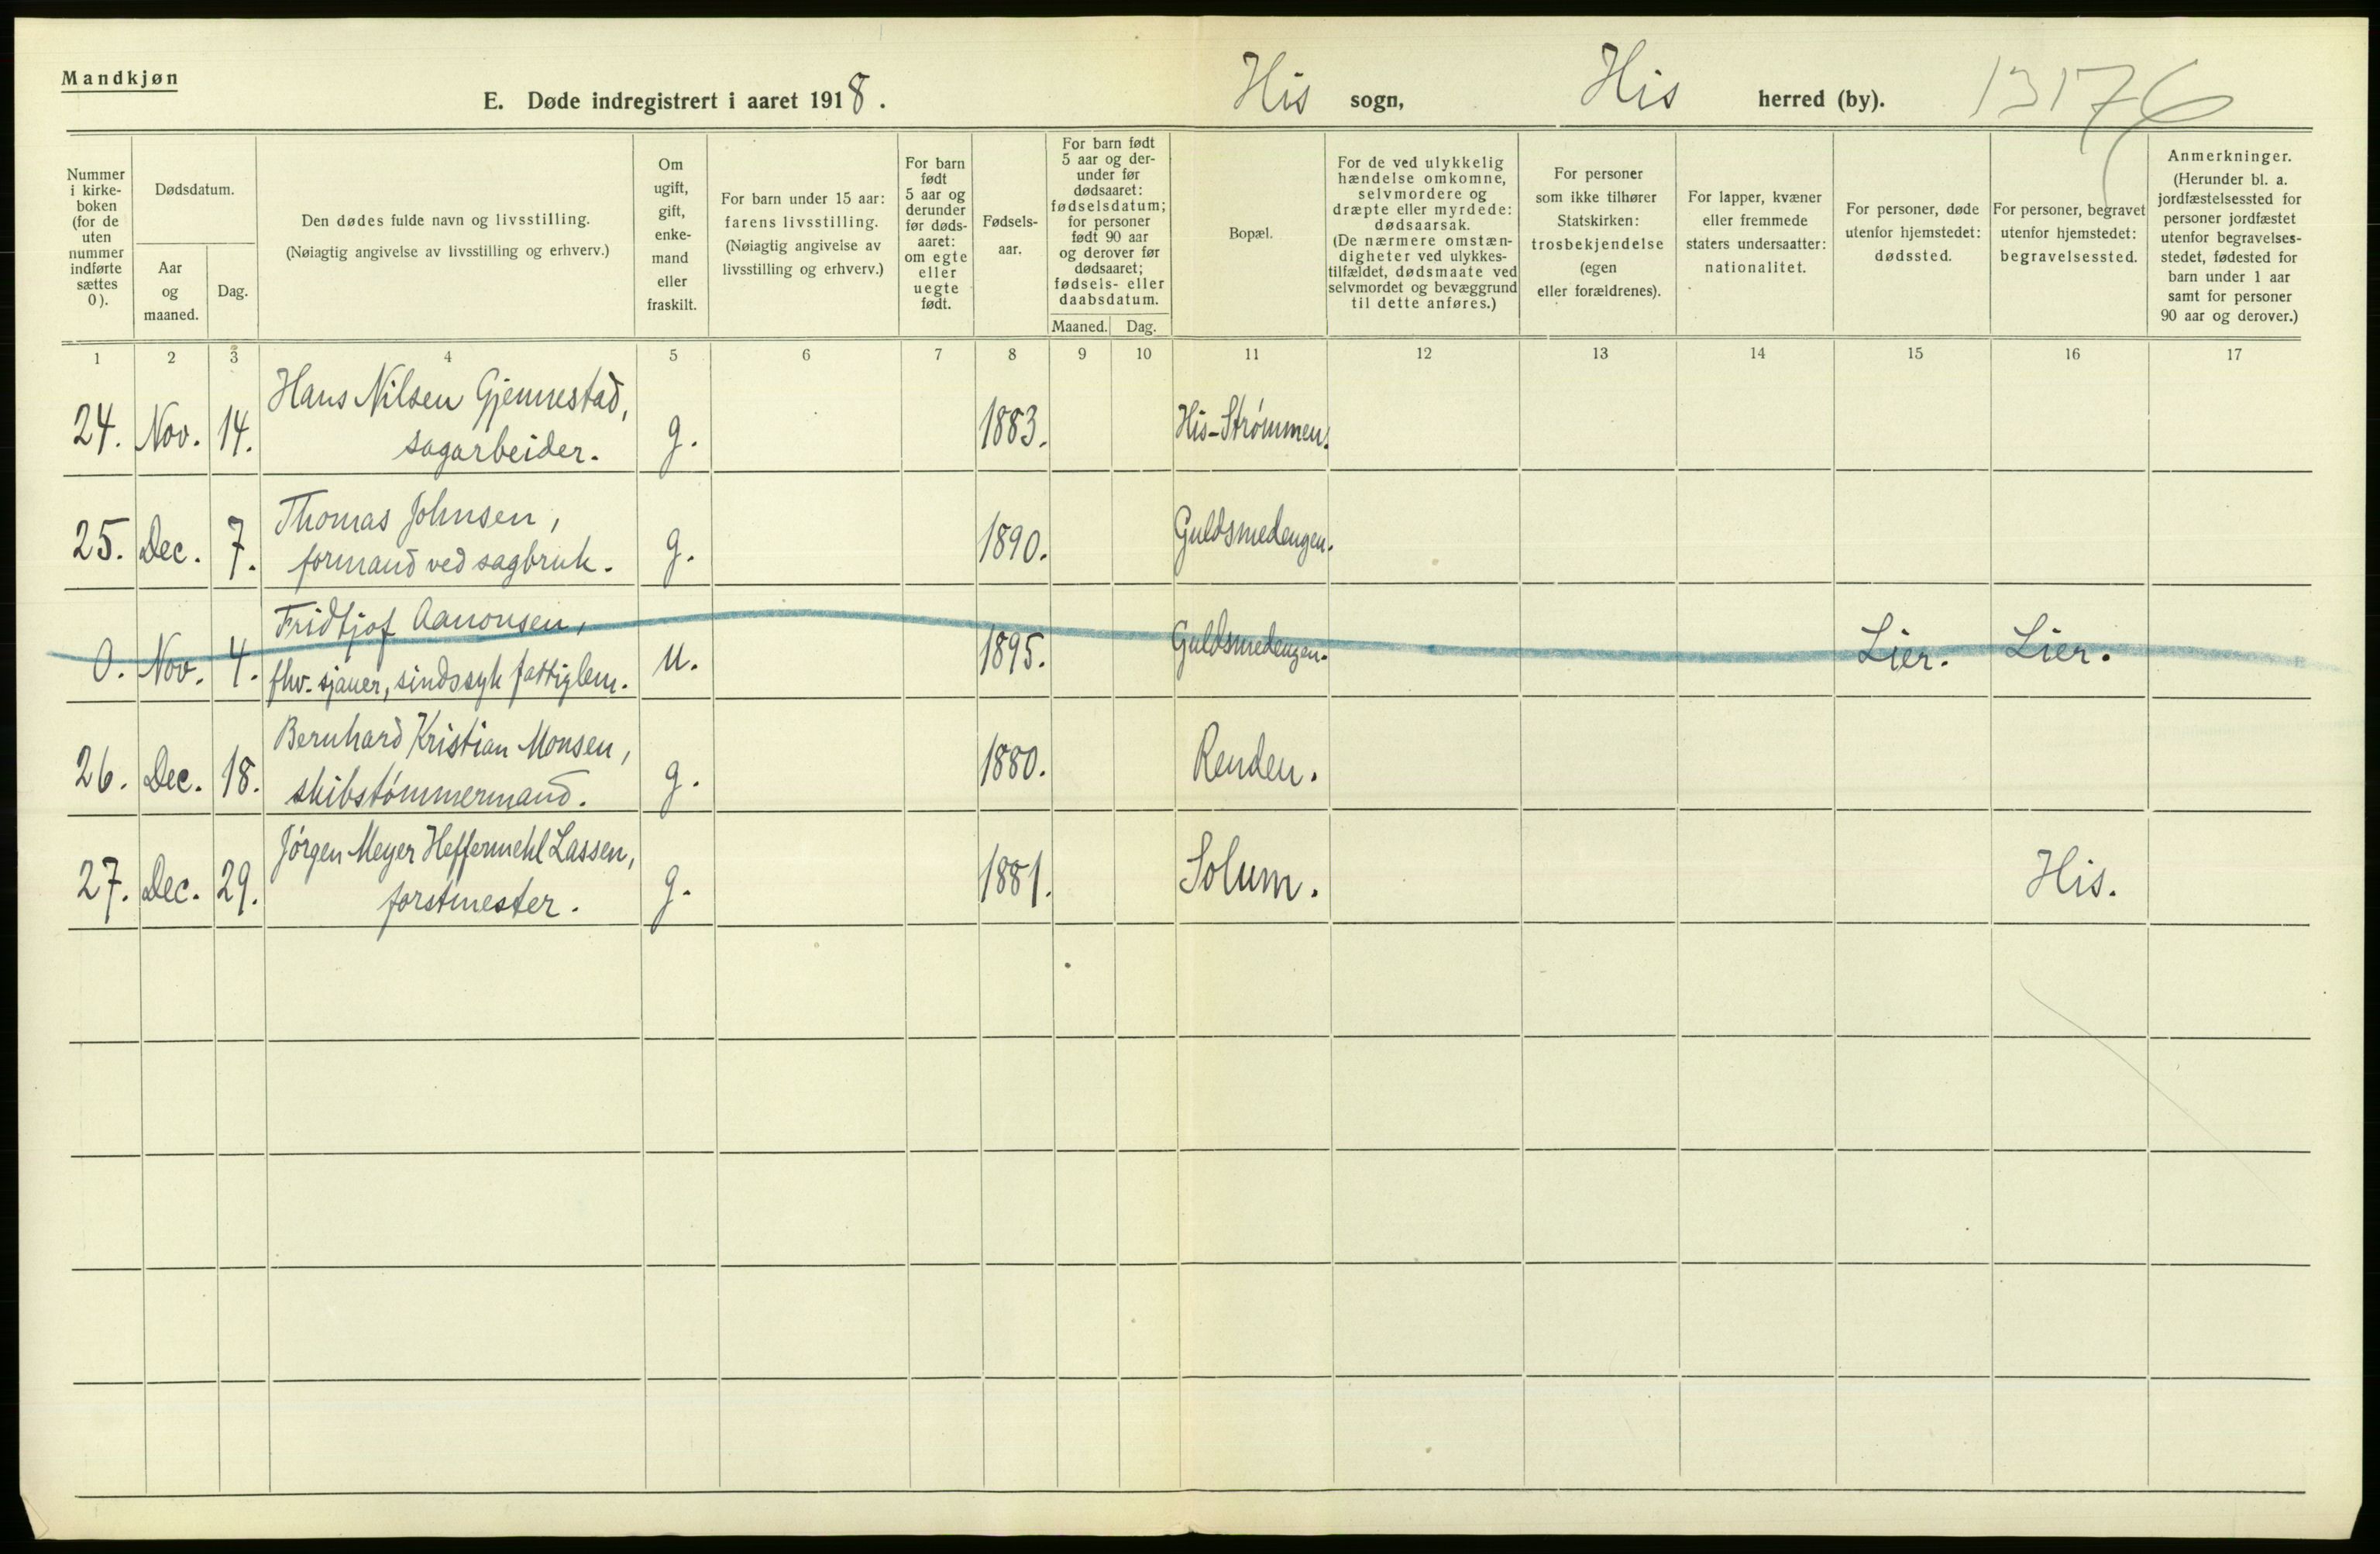 Mandkjøn
E. Døde indregistrert i aaret 1918.
His sogn, His herred (by). 13176
Nummer i kirke- boken (for de uten nummer indførte sættes 0).
Dødsdatum.
Aar og maaned.
Dag.
Den dødes fulde navn og livsstilling.
(Nøiagtig angivelse av livsstilling og erhverv.)
Om ugift, gift, enke- mand eller fraskilt.
For barn under 15 aar: farens livsstilling. (Nøiagtig angivelse av livsstilling og erhverv.)
For barn født 5 aar og derunder før døds- aaret: om egte eller uegte født.
Fødsels- aar.
For barn født 5 aar og der- under før dødsaaret: fødselsdatum; for personer født 90 aar og derover før dødsaaret; fødsels- eller daabsdatum.
Maaned. Dag.
Bopæl.
For de ved ulykkelig hændelse omkomne, selvmordere og dræpte eller myrdede: dødsaarsak. (De nærmere omstæn- digheter ved ulykkes- tilfældet, dødsmaate ved selvmordet og bevæggrund til dette anføres.)
For personer som ikke tilhører Statskirken: trosbekjendelse (egen eller forældrenes).
For lapper, kvæner eller fremmede staters undersaatter: nationalitet.
For personer, døde utenfor hjemstedet: dødssted.
For personer, begravet utenfor hjemstedet: begravelsessted.
Anmerkninger. (Herunder bl. a. jordfæstelsessted for personer jordfæstet utenfor begravelses- stedet, fødested for barn under 1 aar samt for personer 90 aar og derover.)
1 2 3 4 5 6 7 8 9 10 11 12 13 14 15 16 17
Hans Nilsen Gjennestad,
24. Nov. 14. sagarbeider. g. 1883. His-Strømmen.
Thomas Johnsen,
25. Dec. 7. formand ved sagbruk. g. 1890. Guldsmedengen.
Fridtjof Aanonsen,
0. Nov. 4. fhv. sjauer, sindssyk fattiglem. u. 1895. Guldsmedengen. Lier. Lier.
Bernhard Kristian Monsen,
26. Dec. 18. skibstømmermand. g. 1880. Renden.
Jørgen Meyer Heffermehl Lassen,
27. Dec. 29. forstmester. g. 1881. Solum. His.